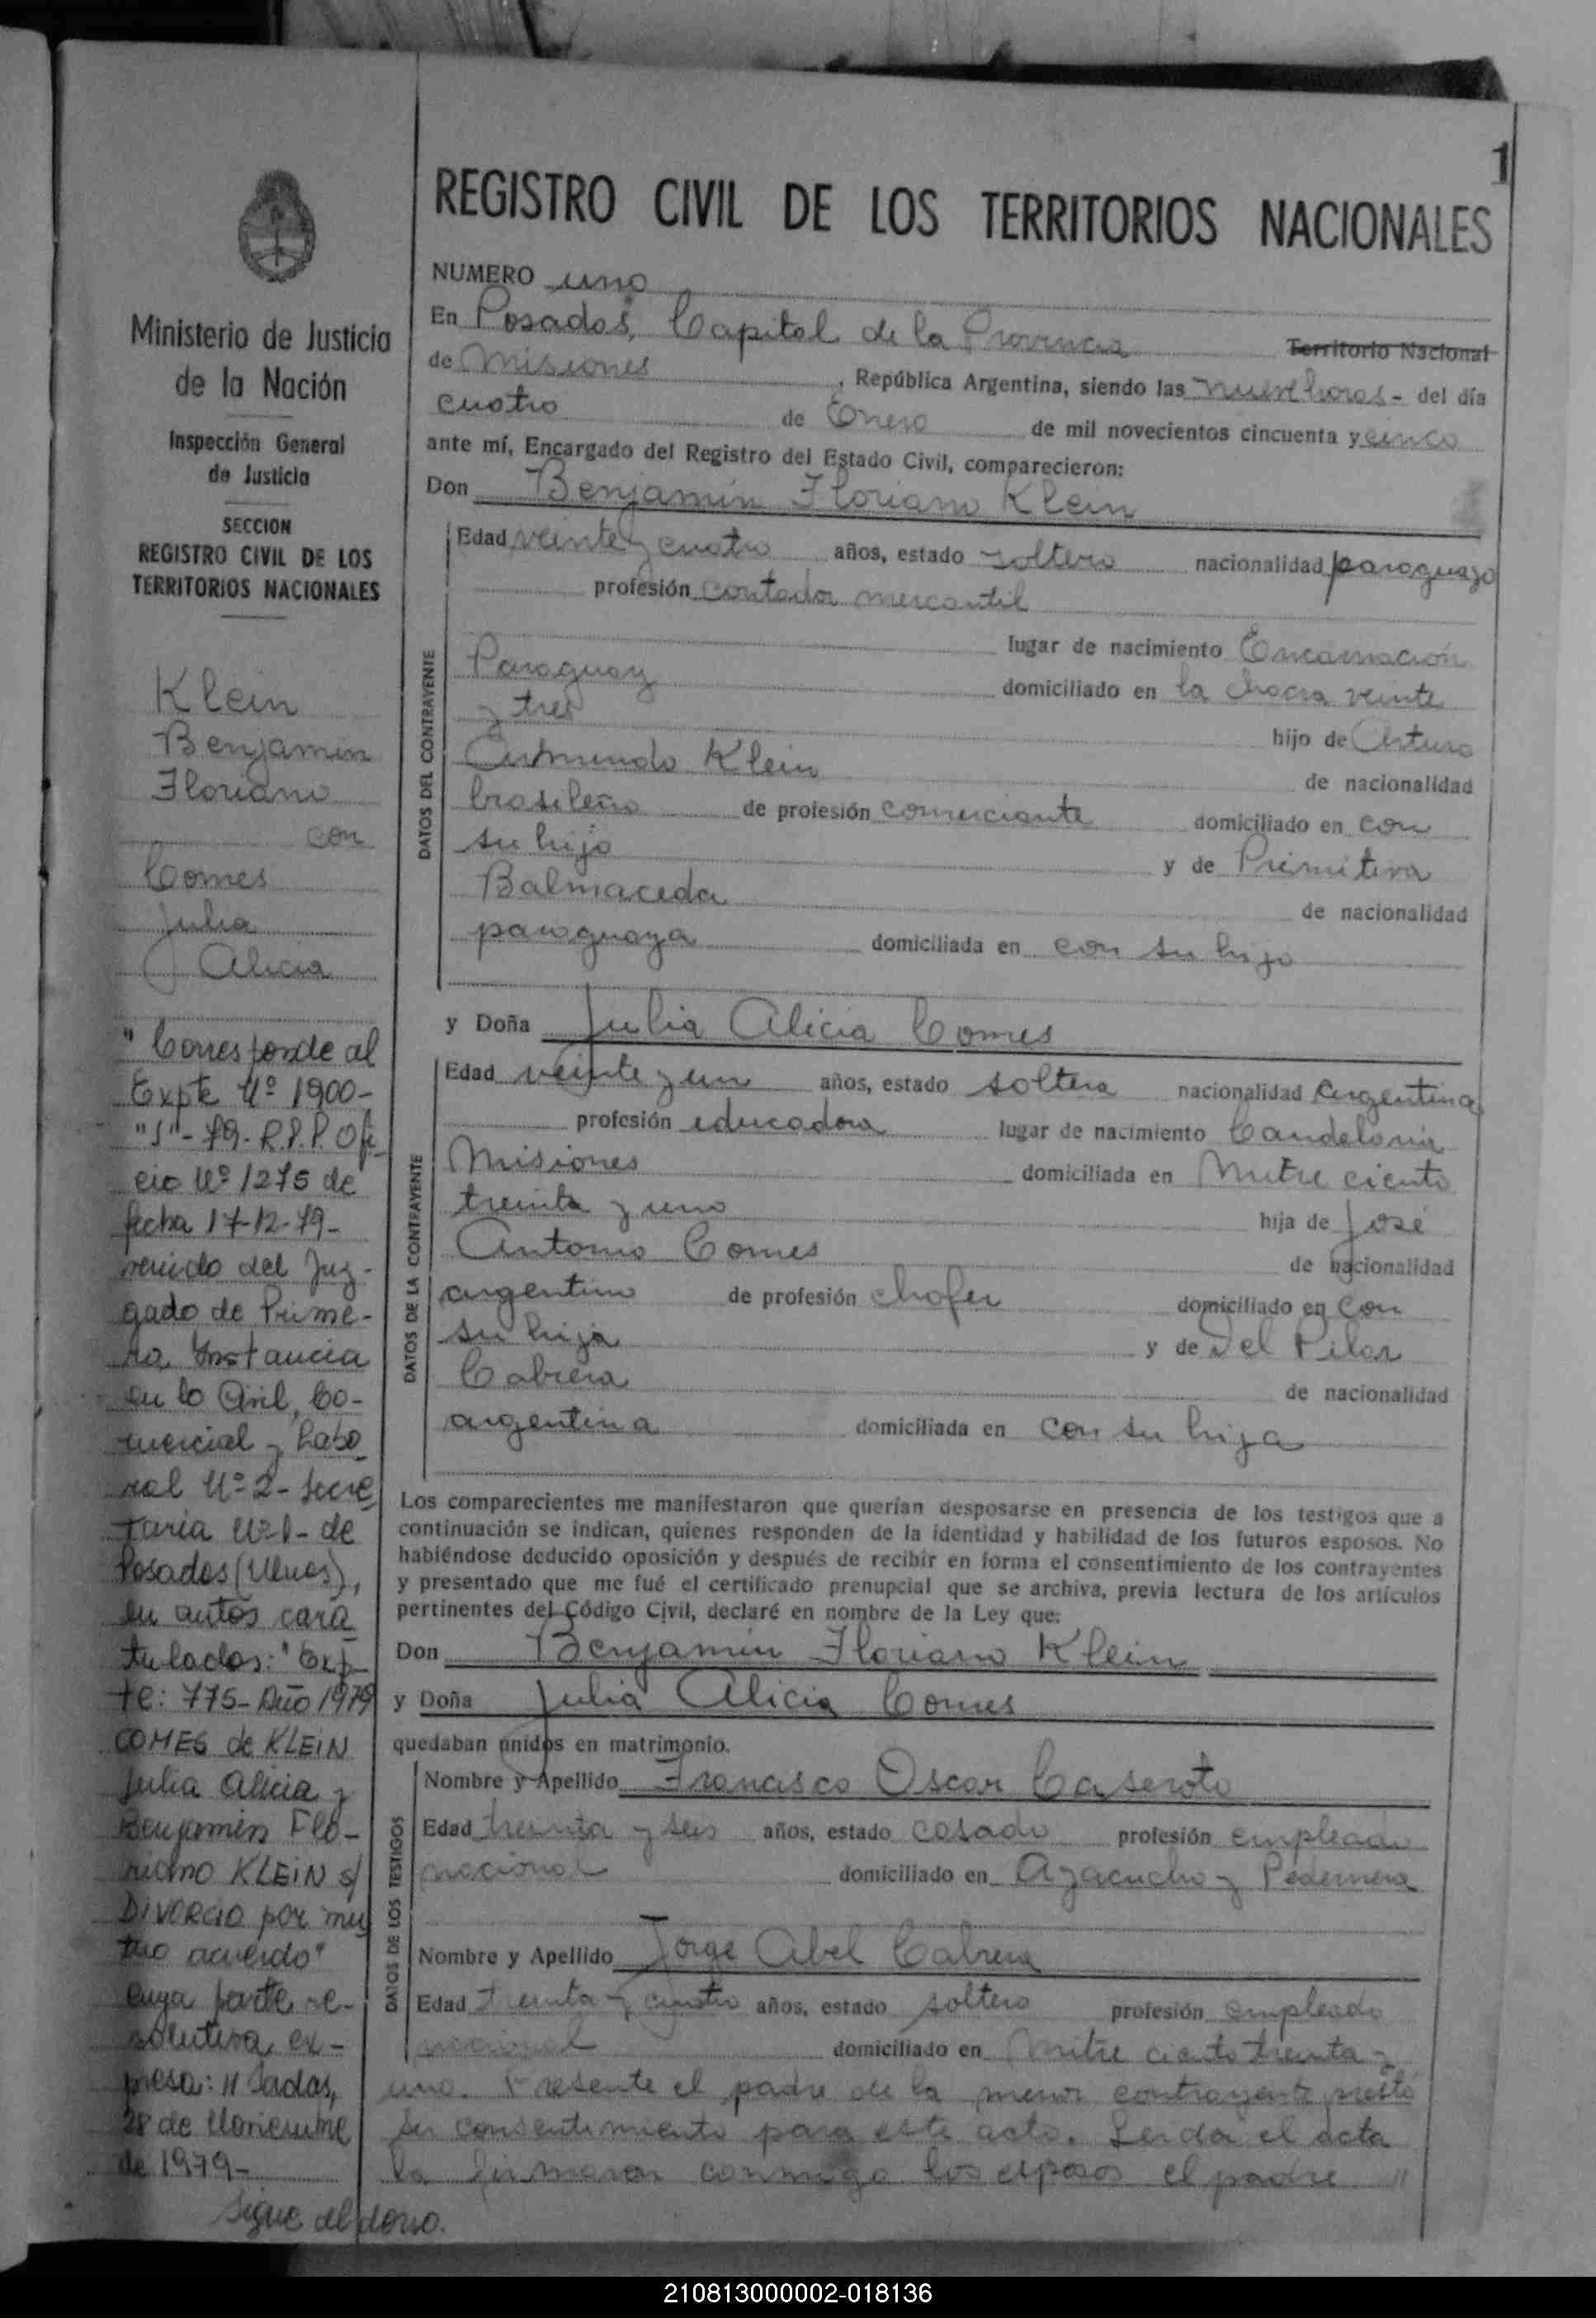 1
REGISTRO CIVIL DE LOS TERRITORIOS NACIONALES
Ministerio de Justicia
de la Nación
Inspección General
de Justicia
SECCION
REGISTRO CIVIL DE LOS
TERRITORIOS NACIONALES
Klein
Benjamin
Floriano
con
Comes
Julia
Alicia
"Corresponde al
Expte Nº 1900-
"J"-79- R.P.P. Ofi-
cio Nº 1275 de
fecha 17-12-79-
venido del Juz-
gado de Prime-
ra Instancia
en lo Civil, Co-
mercial y Labo
ral Nº 2- Secre
taria Nº 1- de
Posadas (Mnes),
en autos cara
tulados: "Exp-
te: 775- Año 1979
COMES de KLEIN
Julia Alicia y
Benjamin Flo-
riano KLEIN s/
DIVORCIO por mu
tuo acuerdo"
cuya parte re-
solutiva ex-
presa: // sadas,
28 de Noviembre
de 1979-
Sigue al dorso.
NUMERO uno
En Posadas, Capital de la Provincia Territorio Nacional
de Misiones, República Argentina, siendo las nueve horas- del día
cuatro de Enero de mil novecientos cincuenta y cinco
ante mí, Encargado del Registro del Estado Civil, comparecieron:
Don Benjamin Floriano Klein
DATOS DEL CONTRAYENTE
Edad veinte y cuatro años, estado soltero nacionalidad paraguayo
profesión contador mercantil
lugar de nacimiento Encarnación
Paraguay domiciliado en la chacra veinte
y tres hijo de Arturo
Edmundo Klein de nacionalidad
brasileño de profesión comerciante domiciliado en con
su hijo y de Primitiva
Balmaceda de nacionalidad
paraguaya domiciliada en con su hijo
y Doña Julia Alicia Comes
DATOS DE LA CONTRAYENTE
Edad veinte y un años, estado soltera nacionalidad argentina
profesión educadora lugar de nacimiento Candelaria
Misiones domiciliada en Mitre ciento
treinta y uno hija de José
Antonio Comes de nacionalidad
argentino de profesión chofer domiciliado en con
su hija y de Del Pilar
Cabrera de nacionalidad
argentina domiciliada en con su hija
Los comparecientes me manifestaron que querían desposarse en presencia de los testigos que a
continuación se indican, quienes responden de la identidad y habilidad de los futuros esposos. No
habiéndose deducido oposición y después de recibir en forma el consentimiento de los contrayentes
y presentado que me fué el certificado prenupcial que se archiva, previa lectura de los artículos
pertinentes del Código Civil, declaré en nombre de la Ley que:
Don Benjamin Floriano Klein
y Doña Julia Alicia Comes
quedaban unidos en matrimonio.
DATOS DE LOS TESTIGOS
Nombre y Apellido Francisco Oscar Caseroto
Edad treinta y seis años, estado casado profesión empleado
nacional domiciliado en Ayacucho y Pedernera
Nombre y Apellido Jorge Abel Cabrera
Edad treinta y cuatro años, estado soltero profesión empleado
nacional domiciliado en Mitre ciento treinta y
uno. Presente el padre de la menor contrayente prestó
su consentimiento para este acto. Leida el acta
la firmaron conmigo los esposos el padre //
210813000002-018136